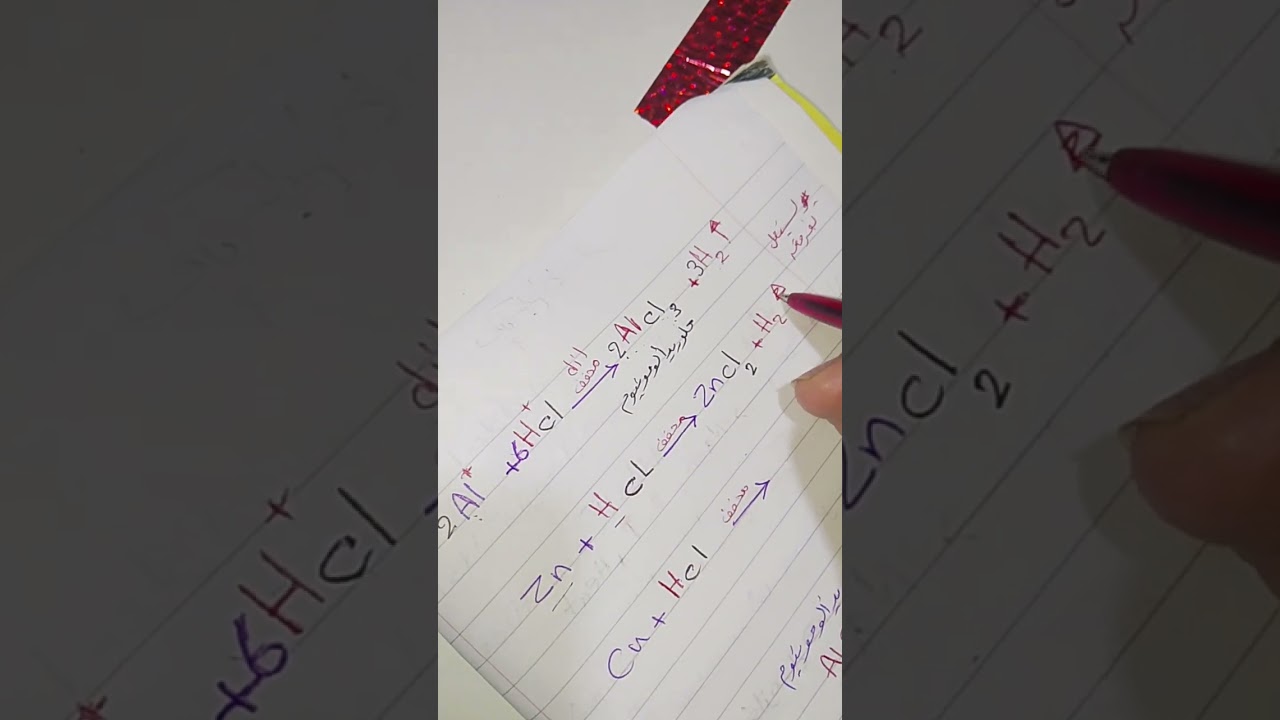 2Al + 6HCl مخفف dil → 2AlCl3 + 3H2↑
كلوريد الومونيوم
Zn + HCl مخفف → ZnCl2 + H2↑
Cu + HCl مخفف →
يد ألومونيوم
Al